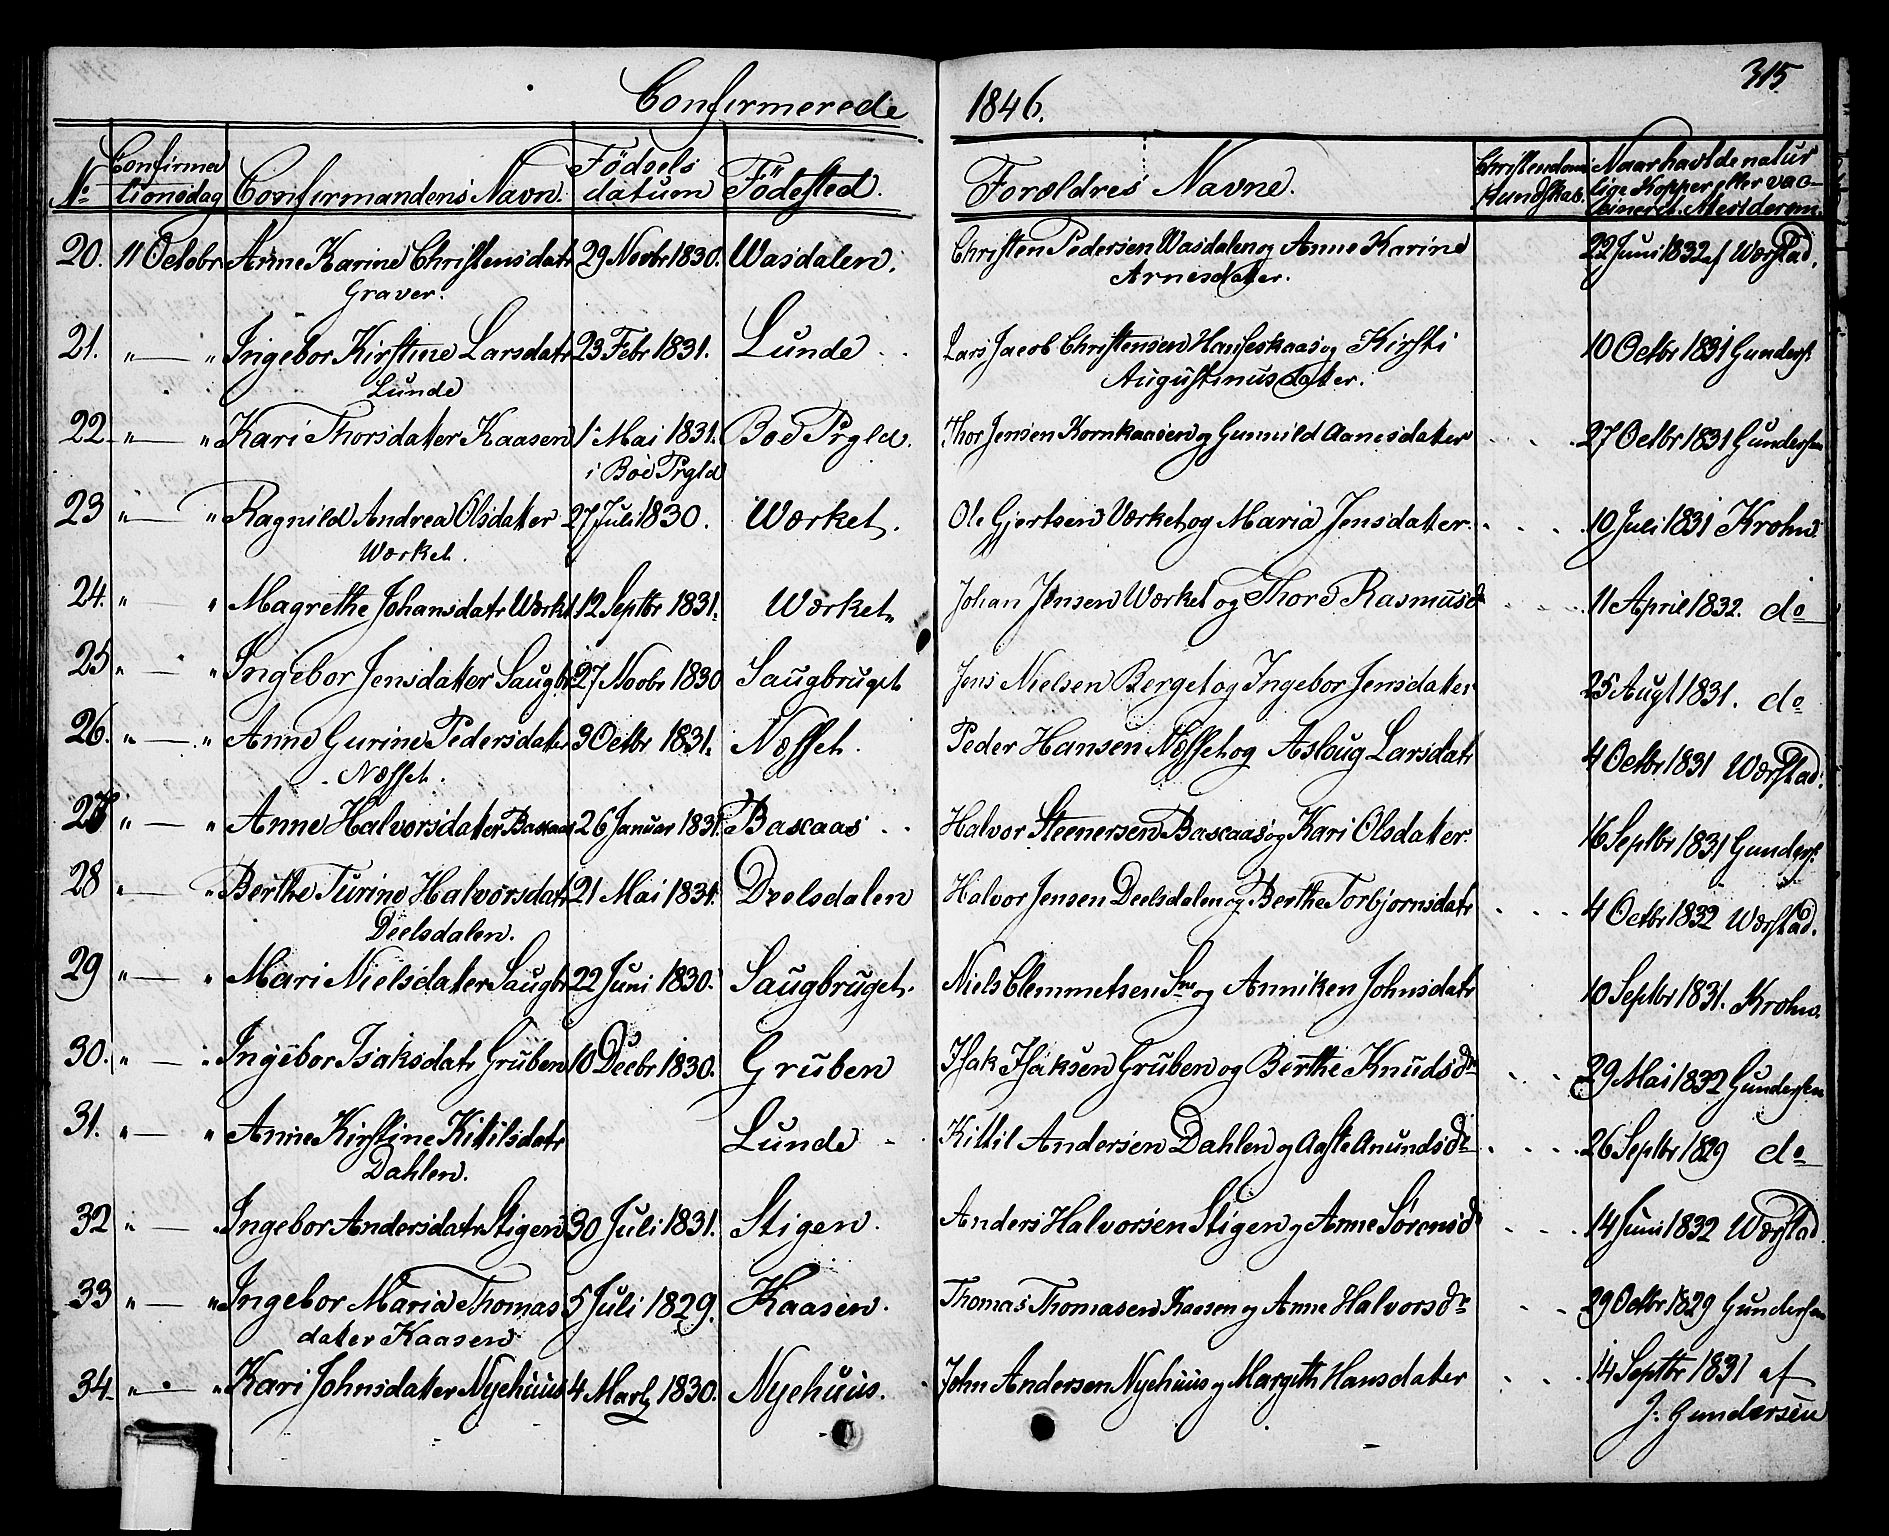 315
Confirmerede 1846.
No Confirmationsdag Confirmandens Navn. Födsels datum Födested. Forældres Navne. Christendoms Kundskab. Naar havt de naturlige Kopper eller vaccineret. Merl derom.
20. 11 Octobr Anne Karine Christensdatr 29 Novbr 1830. Wasdalen. Christen Pedersen Wasdalen og Anne Karine 22 Juni 1832 af Wærstad.
Graver. Arnesdatter.
21. " — " Ingebor Kirstine Larsdatr 23 Febr 1831. Lunde Lars Jacob Christensen Hanseskaas og Kirsti 10 Octbr 1831 Gunders.
Lunde Augustinusdatter.
22. " — " Kari Thorsdater Kaasen 1 Mai 1831. Boe Prgld. Thor Jensen Kornkaasen og Gunnild Aanesdater 27 Octbr 1831 Gundersen
i Boe Prgld
23 " — " Ragnild Andrea Olsdater 27 Juli 1830. Wærket. Ole Gjertsen Værket og Maria Jensdater. 10 Juli 1831 Krohn.
Wærket.
24. " — " Magrethe Johansdatr Wærket 12 Septbr 1831. Wærket Johan Jensen Værket og Thore Rasmusd 11 April 1832. do
25 " — " Ingebor Jensdater Saugbr 27 Novbr 1830 Saugbruget Jens Nielsen Berget og Ingebor Jensdater 25 Augt 1831. do
26. " — " Anne Gurine Pedersdater 3 Octbr 1831. Næsset. Peder Hansen Næsset og Aslaug Larsdatr 4 Octbr 1831 Wærstad.
Næsset.
27 " — " Anne Halvorsdater Baxaas 26 Januar 1831. Baxaas Halvor Steenersen Baxaas og Kari Olsdater. 16 Septbr 1831 Gunders.
28 " — " Berthe Turine Halvorsdatr 21 Mai 1831. Deelsdalen Halvor Jensen Deelsdalen og Berthe Torbjornsdatr 4 Octbr 1832 Wærstad.
Deelsdalen.
29 " — " Mari Nielsdater Saugbr 22 Juni 1830. Saugbruget. Niels Clemmetsen Sme og Anniken Johnsdatr 10 Septbr 1831. Krohn.
30. " — " Ingebor Isaksdatr Gruben 10 Decbr 1830. Gruben Isak Isaksen Gruben og Berthe Knudsdr 29 Mai 1832 Gundersen
31. " — " Anne Kirstine Kitilsdatr Lunde Kittil Andersen Dahlen og Aaste Anundsdr 26 Septbr 1829 do
Dahlen.
32 " — " Ingebor Andersdatr Stigen 30 Juli 1831. Stigen. Anders Halvorsen Stigen og Anne Sörensd 14 Juni 1832 Wærstad.
33 " — " Ingebor Maria Thomas 5 Juli 1829. Kaasen. Thomas Thomasen Kaasen og Anne Halvorsdr 29 Octbr 1829 Gundersen
dater Kaasen
34. " — " Kari Johnsdater Nyehuus 4 Marts 1830. Nyehuus. John Andersen Nyehuus og Margith Hansdater 14 Septbr 1831 af
J. Gundersen